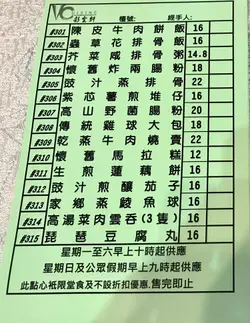 VC DINING
彩雲軒 檯號: 經手人:
#301 陳皮牛肉餅飯 16
#302 蟲草花排骨飯 16
#303 芥菜咸骨粥 14.8
#304 懷舊炸兩腸粉 18
#305 豉汁蒸排骨 22
#306 紫芯薯煎堆仔 16
#307 高山野菌腸粉 20
#308 傳統雞球大包 18
#309 乾蒸牛肉燒賣 22
#310 懷舊馬拉糕 12
#311 生煎蓮藕餅 16
#312 豉汁煎釀茄子 16
#313 家鄉蒸鯪魚球 16
#314 高湯菜肉雲吞(3隻) 16
#315 琵琶豆腐丸 16
星期一至六早上十時起供應
星期日及公眾假期早上九時起供應
此點心衹限堂食及不設折扣優惠,售完即止